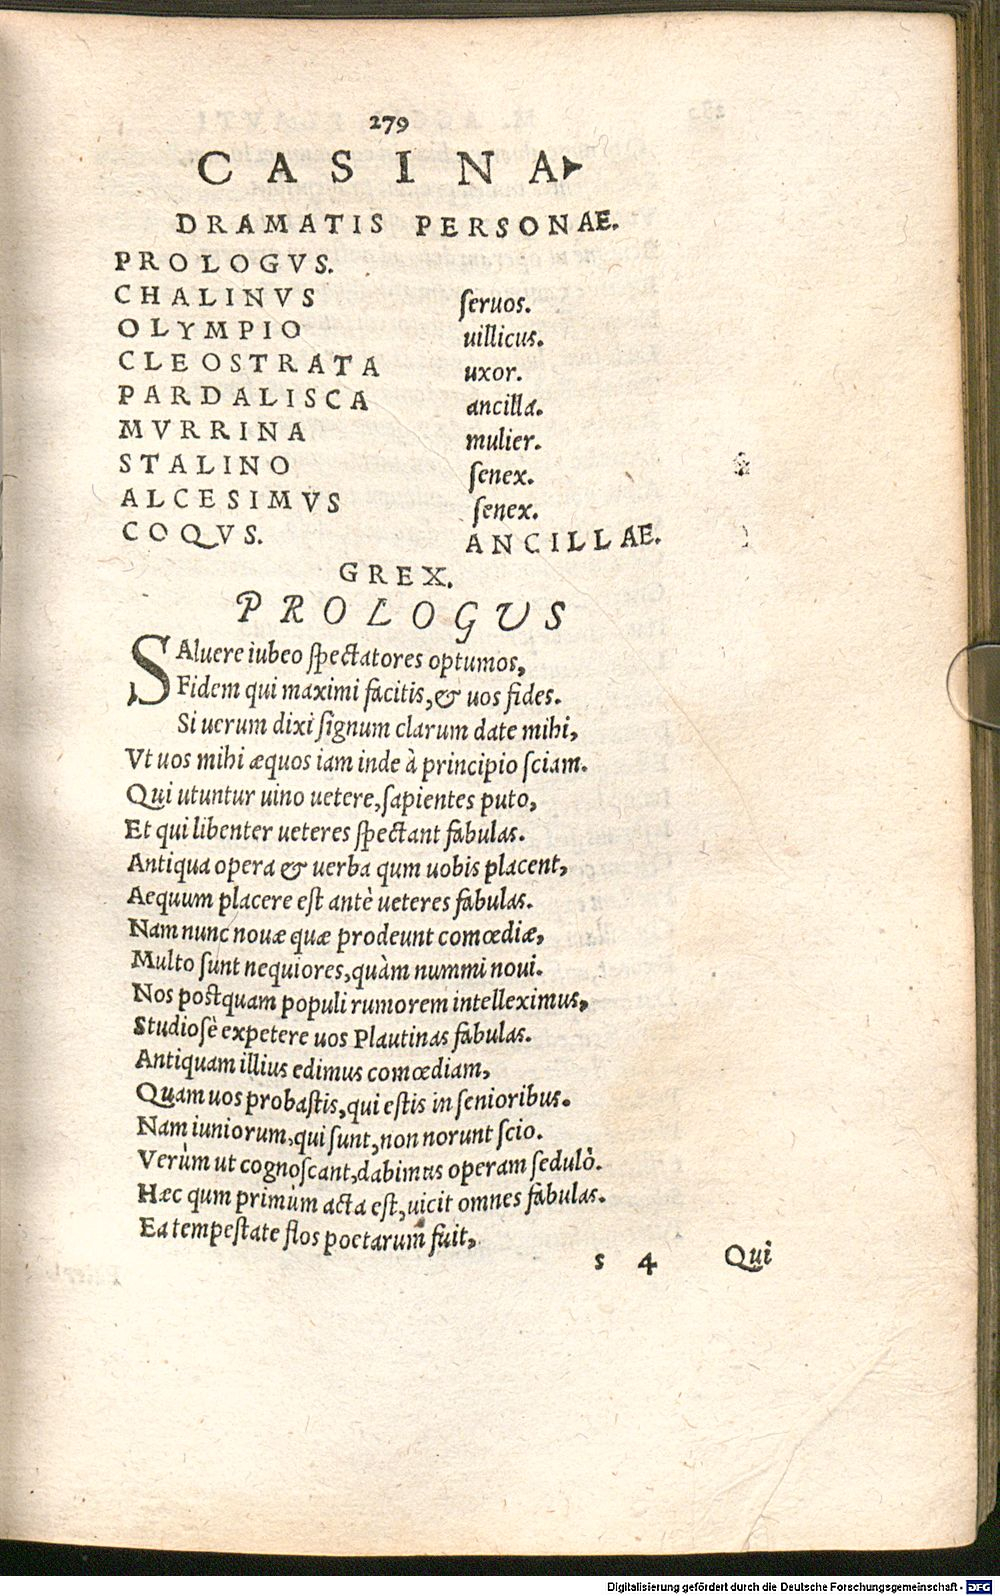 279
CASINA
DRAMATIS PERSONAE.
PROLOGVS.
CHALINVS ſeruos.
OLYMPIO uillicus.
CLEOSTRATA uxor.
PARDALISCA ancilla.
MVRRINA mulier.
STALINO ſenex.
ALCESIMVS ſenex.
COQVS. ANCILLAE.
GREX.
PROLOGUS
SAluere iubeo ſpectatores optumos,
Fidem qui maximi facitis, & uos fides.
Si uerum dixi ſignum clarum date mihi,
Vt uos mihi æquos iam inde à principio ſciam.
Qui utuntur uino uetere, ſapientes puto,
Et qui libenter ueteres ſpectant fabulas.
Antiqua opera & uerba qum uobis placent,
Aequum placere eſt antè ueteres fabulas.
Nam nunc nouæ quæ prodeunt comœdiæ,
Multo ſunt nequiores, quàm nummi noui.
Nos poſtquam populi rumorem intelleximus,
Studioſè expetere uos Plautinas fabulas.
Antiquam illius edimus comœdiam,
Quam uos probaſtis, qui eſtis in ſenioribus.
Nam iuniorum, qui ſunt, non norunt ſcio.
Verùm ut cognoſcant, dabimus operam ſedulò.
Hæc qum primùm acta eſt, uicit omnes fabulas.
Ea tempeſtate flos poetarum fuit,
s 4 Qui
Digitalisierung gefördert durch die Deutsche Forschungsgemeinschaft - DFG